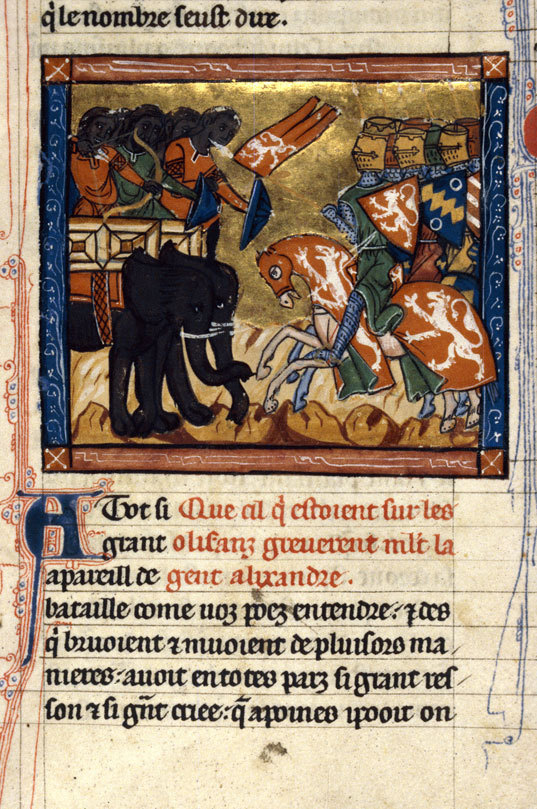 q̓ le nombre seust dire.
A Tot si Que cil q̓ estoient sur les
grant olifanz greverent ml̓t la
apareill de gent alixandre.
bataille come uoz poez entendre. ⁊ des
q̓ bruoient ⁊ muoient de pluisors ma
nieres. auoit en totes parz si grant ref
son ⁊ si gr̃nt criee. q̃ apoines ipooit on